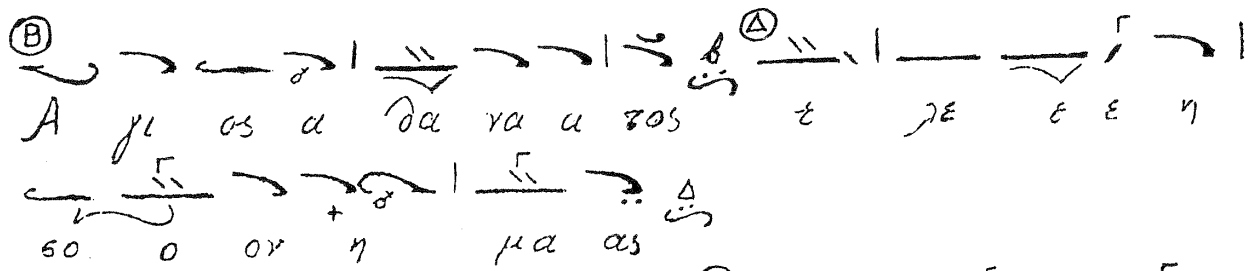 Β Δ Γ
Α γι ος α θα να α τος ε λε ε ε η
Γ Γ Δ
σο ο ον η μα ας